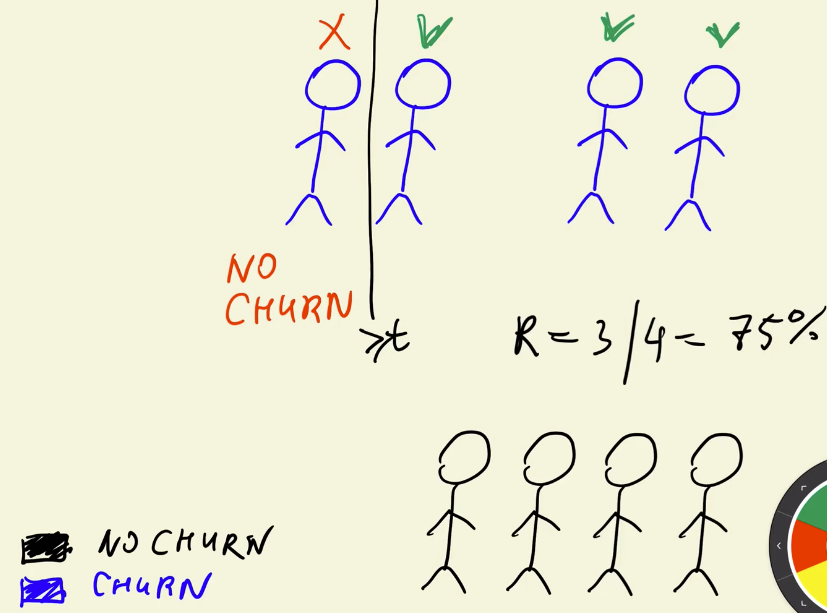 NO
CHURN
≥t
R = 3/4 = 75%
NO CHURN
CHURN